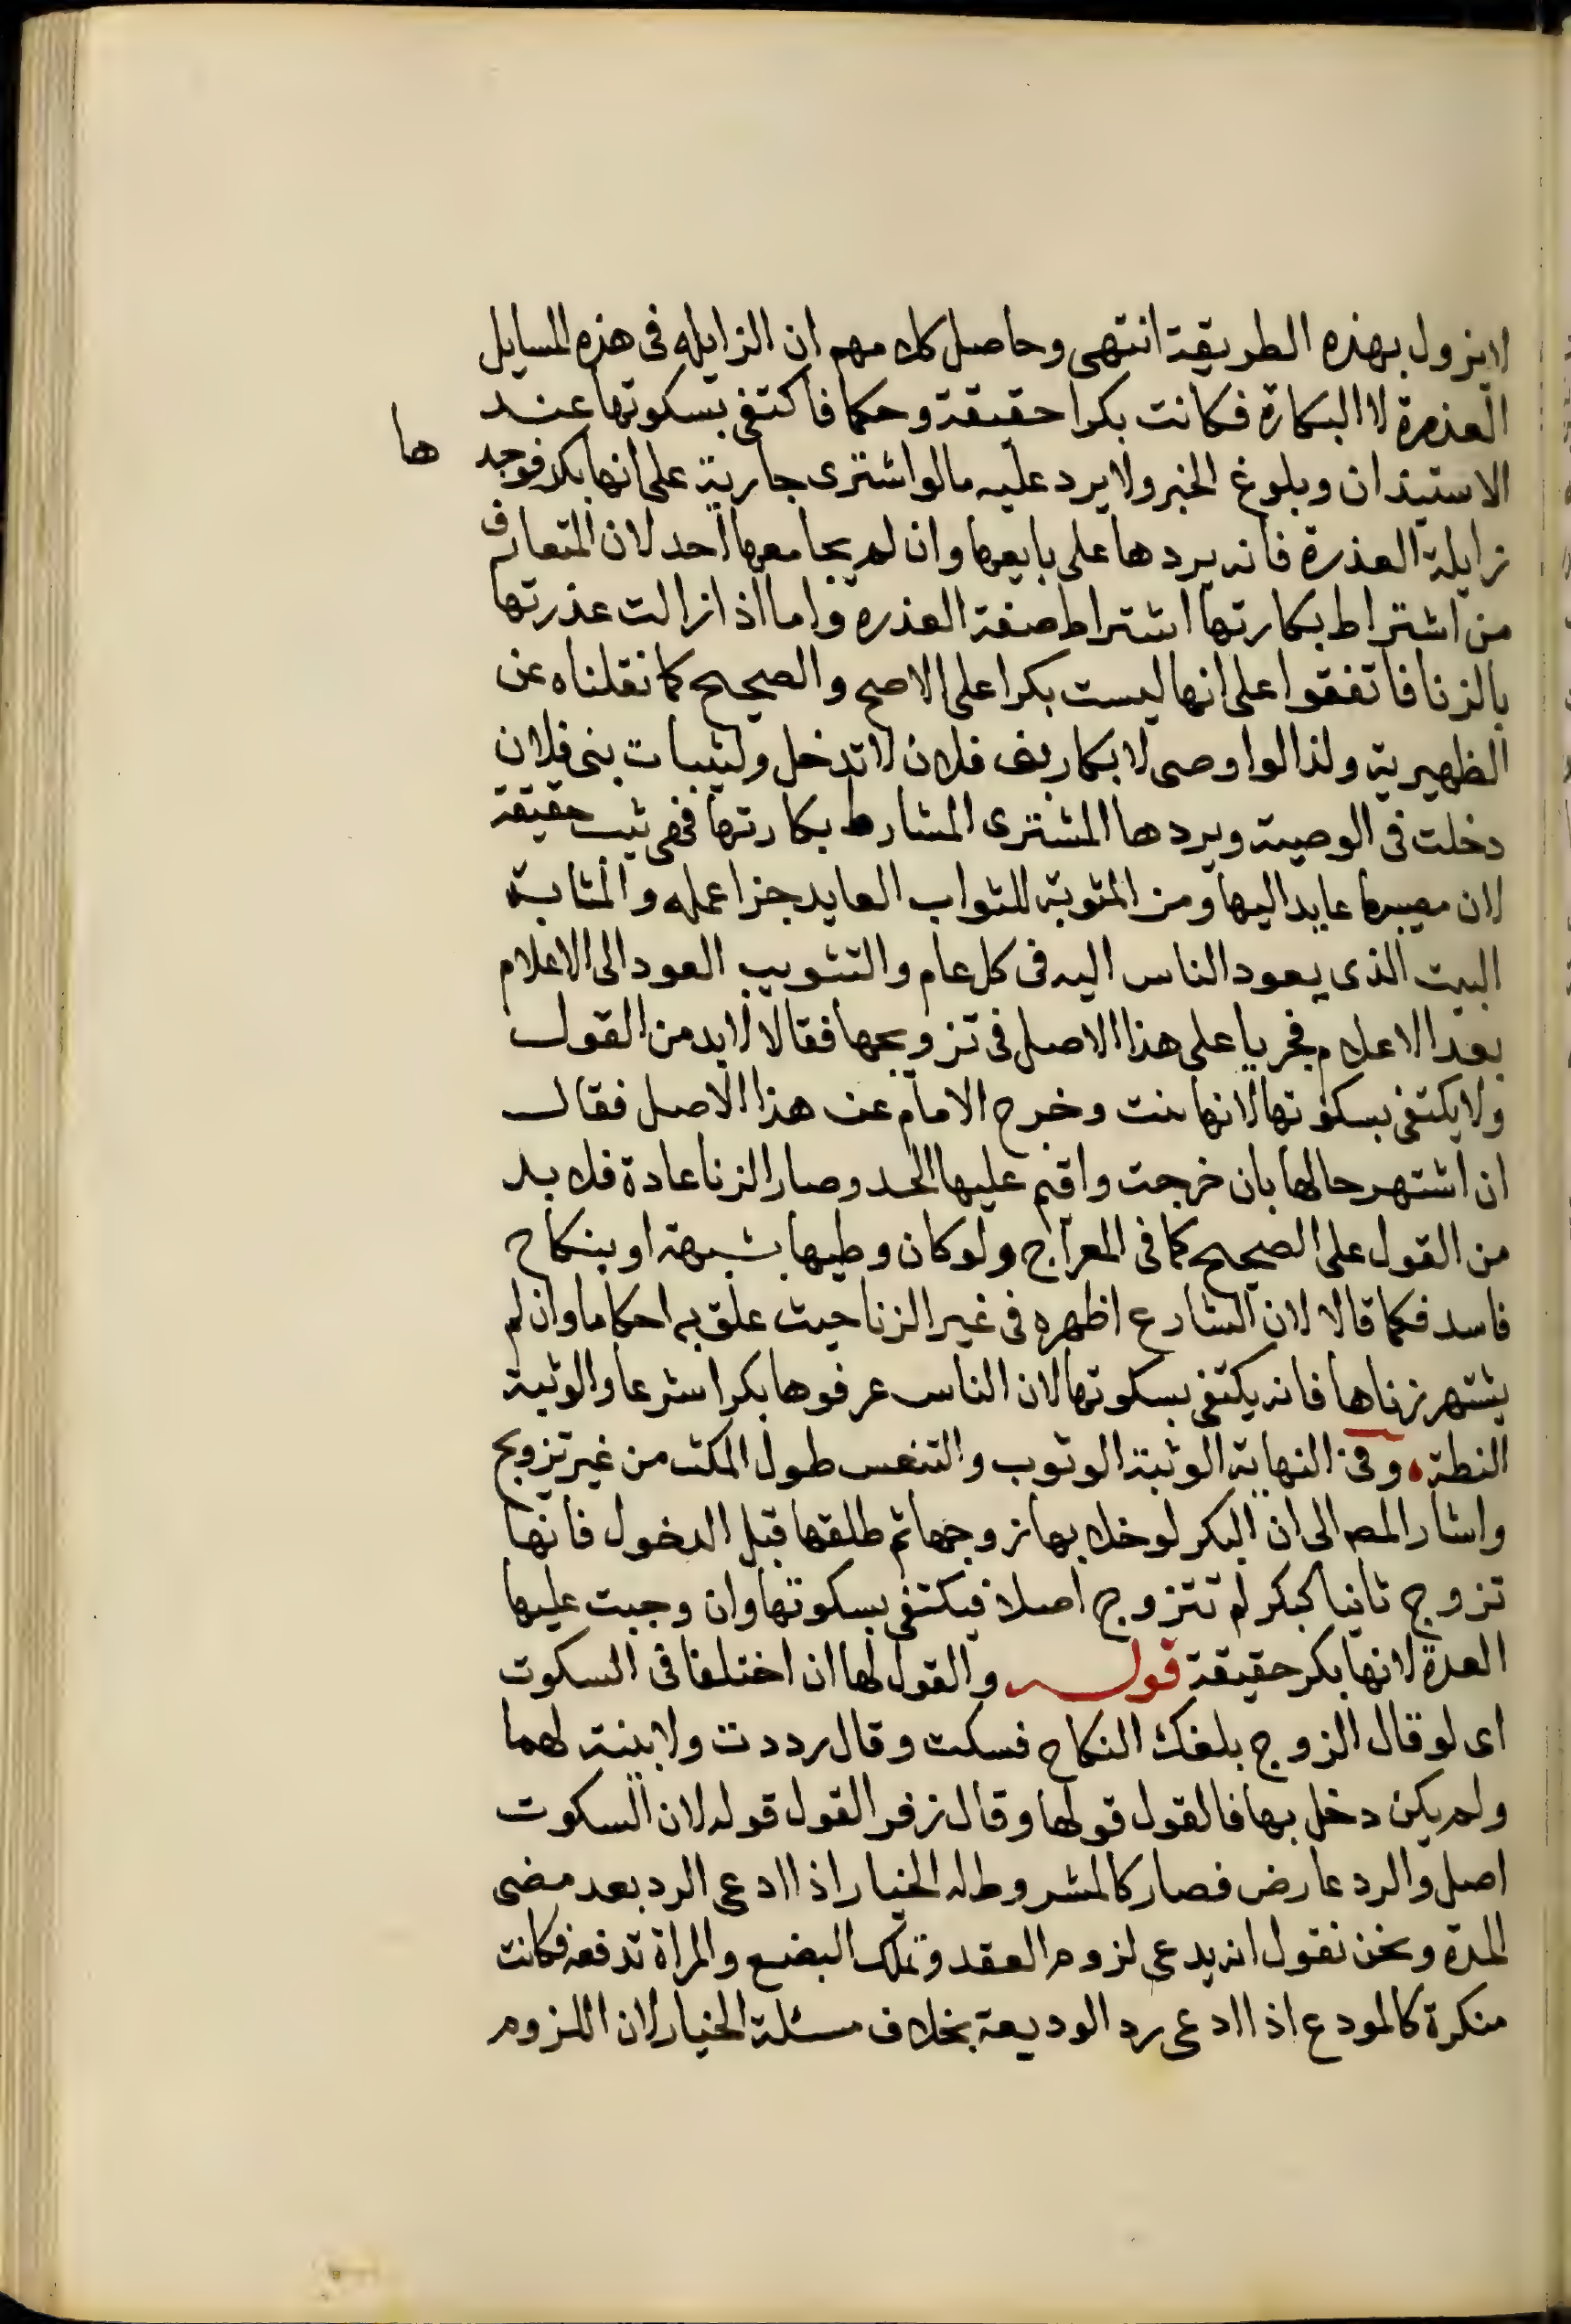 لا يزول بهذه الطريقة انتهى وحاصل كلامهم ان الزايله فى هذه المسايل
العذرة لا البكارة فكانت بكرا حقيقة وحكما فاكتفى بسكوتها عند
الاستيذان وبلوغ الخبر ولا يرد عليه ما لو اشترى جارية على انها بكر فوجد ها
زايلة العذرة فانه يردها على بايعها وان لم يجامعها احد لان المتعارف
من اشتراط بكارتها اشتراط صفة العذره واما اذا زالت عذرتها
بالزنا فاتفقوا على انها ليست بكرا على الاصح والصحيح كما نقلناه عن
الظهيرية ولذا لو اوصى لابكار بنى فلان لا تدخل ولثيبات بنى فلان
دخلت فى الوصية ويردها المشترى المشارط بكارتها فهى ثيب حقيقة
لان مصيبها عايد اليها ومن المثوبة للثواب العايد جزا عمله والمثابة
البيت الذى يعود الناس اليه فى كل عام والتثويب العود الى الاعلام
بعد الاعلام فجريا على هذا الاصل فى تزويجها فقالا لا بد من القول
ولا يكتفى بسكوتها لانها ثيت وخرج الامام عن هذا الاصل فقال
ان اشتهر حالها بان خرجت واقيم عليها الحد وصار الزنا عادة فلا بد
من القول على الصحيح كما فى المعراج ولو كان وطيها بشبهة او بنكاح
فاسد فكما قالا لان الشارع اظهره فى غير الزنا حيث علق به احكاما وان لم
يشتهر زناها فانه يكتفى بسكوتها لان الناس عرفوها بكرا شرعا والوثبة
النطة وفى النهاية الوثبة الوثوب والتنعس طول المكث من غير تزويج
واشار المص الى ان البكر لو خلا بها زوجها ثم طلقها قبل الدخول فانها
تزوج ثانيا كبكر لم تتزوج اصلا فيكتفى بسكوتها وان وجبت عليها
العدة لانها بكر حقيقة قوله والقول لها ان اختلفا فى السكوت
اى لو قال الزوج بلغك النكاح فسكت وقال رددت ولا بينة لهما
ولم يكن دخل بها فالقول قولها وقال زفر القول قوله لان السكوت
اصل والرد عارض فصار كالمشروط له الخيار اذا ادعى الرد بعد مضى
المدة ونحن نقول انه يدعى لزوم العقد وتملك البضع والمراة تدفعه فكانت
منكرة كالمودع اذا ادعى رد الوديعة بخلاف مسئلة الخيار لان اللزوم